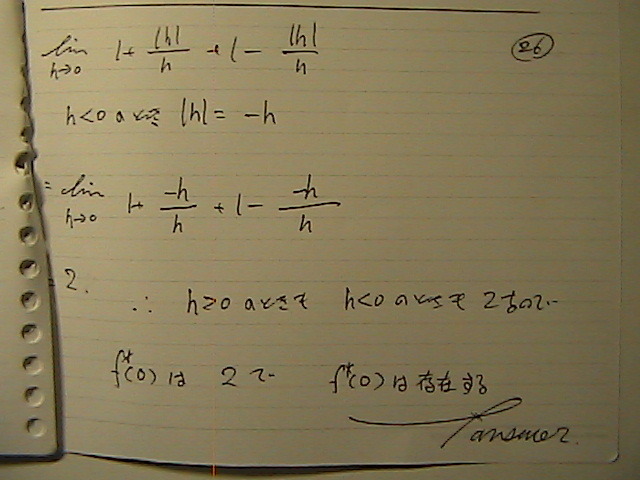 lim h→0 1+ |h|/h + 1 - |h|/h ㉖
h<0 のとき |h| = -h
= lim h→0 1+ -h/h + 1 - -h/h
= 2.
∴ h≥0 のときも h<0 のときも 2なので
f*(0) は 2 で f*(0) は存在する
answer.